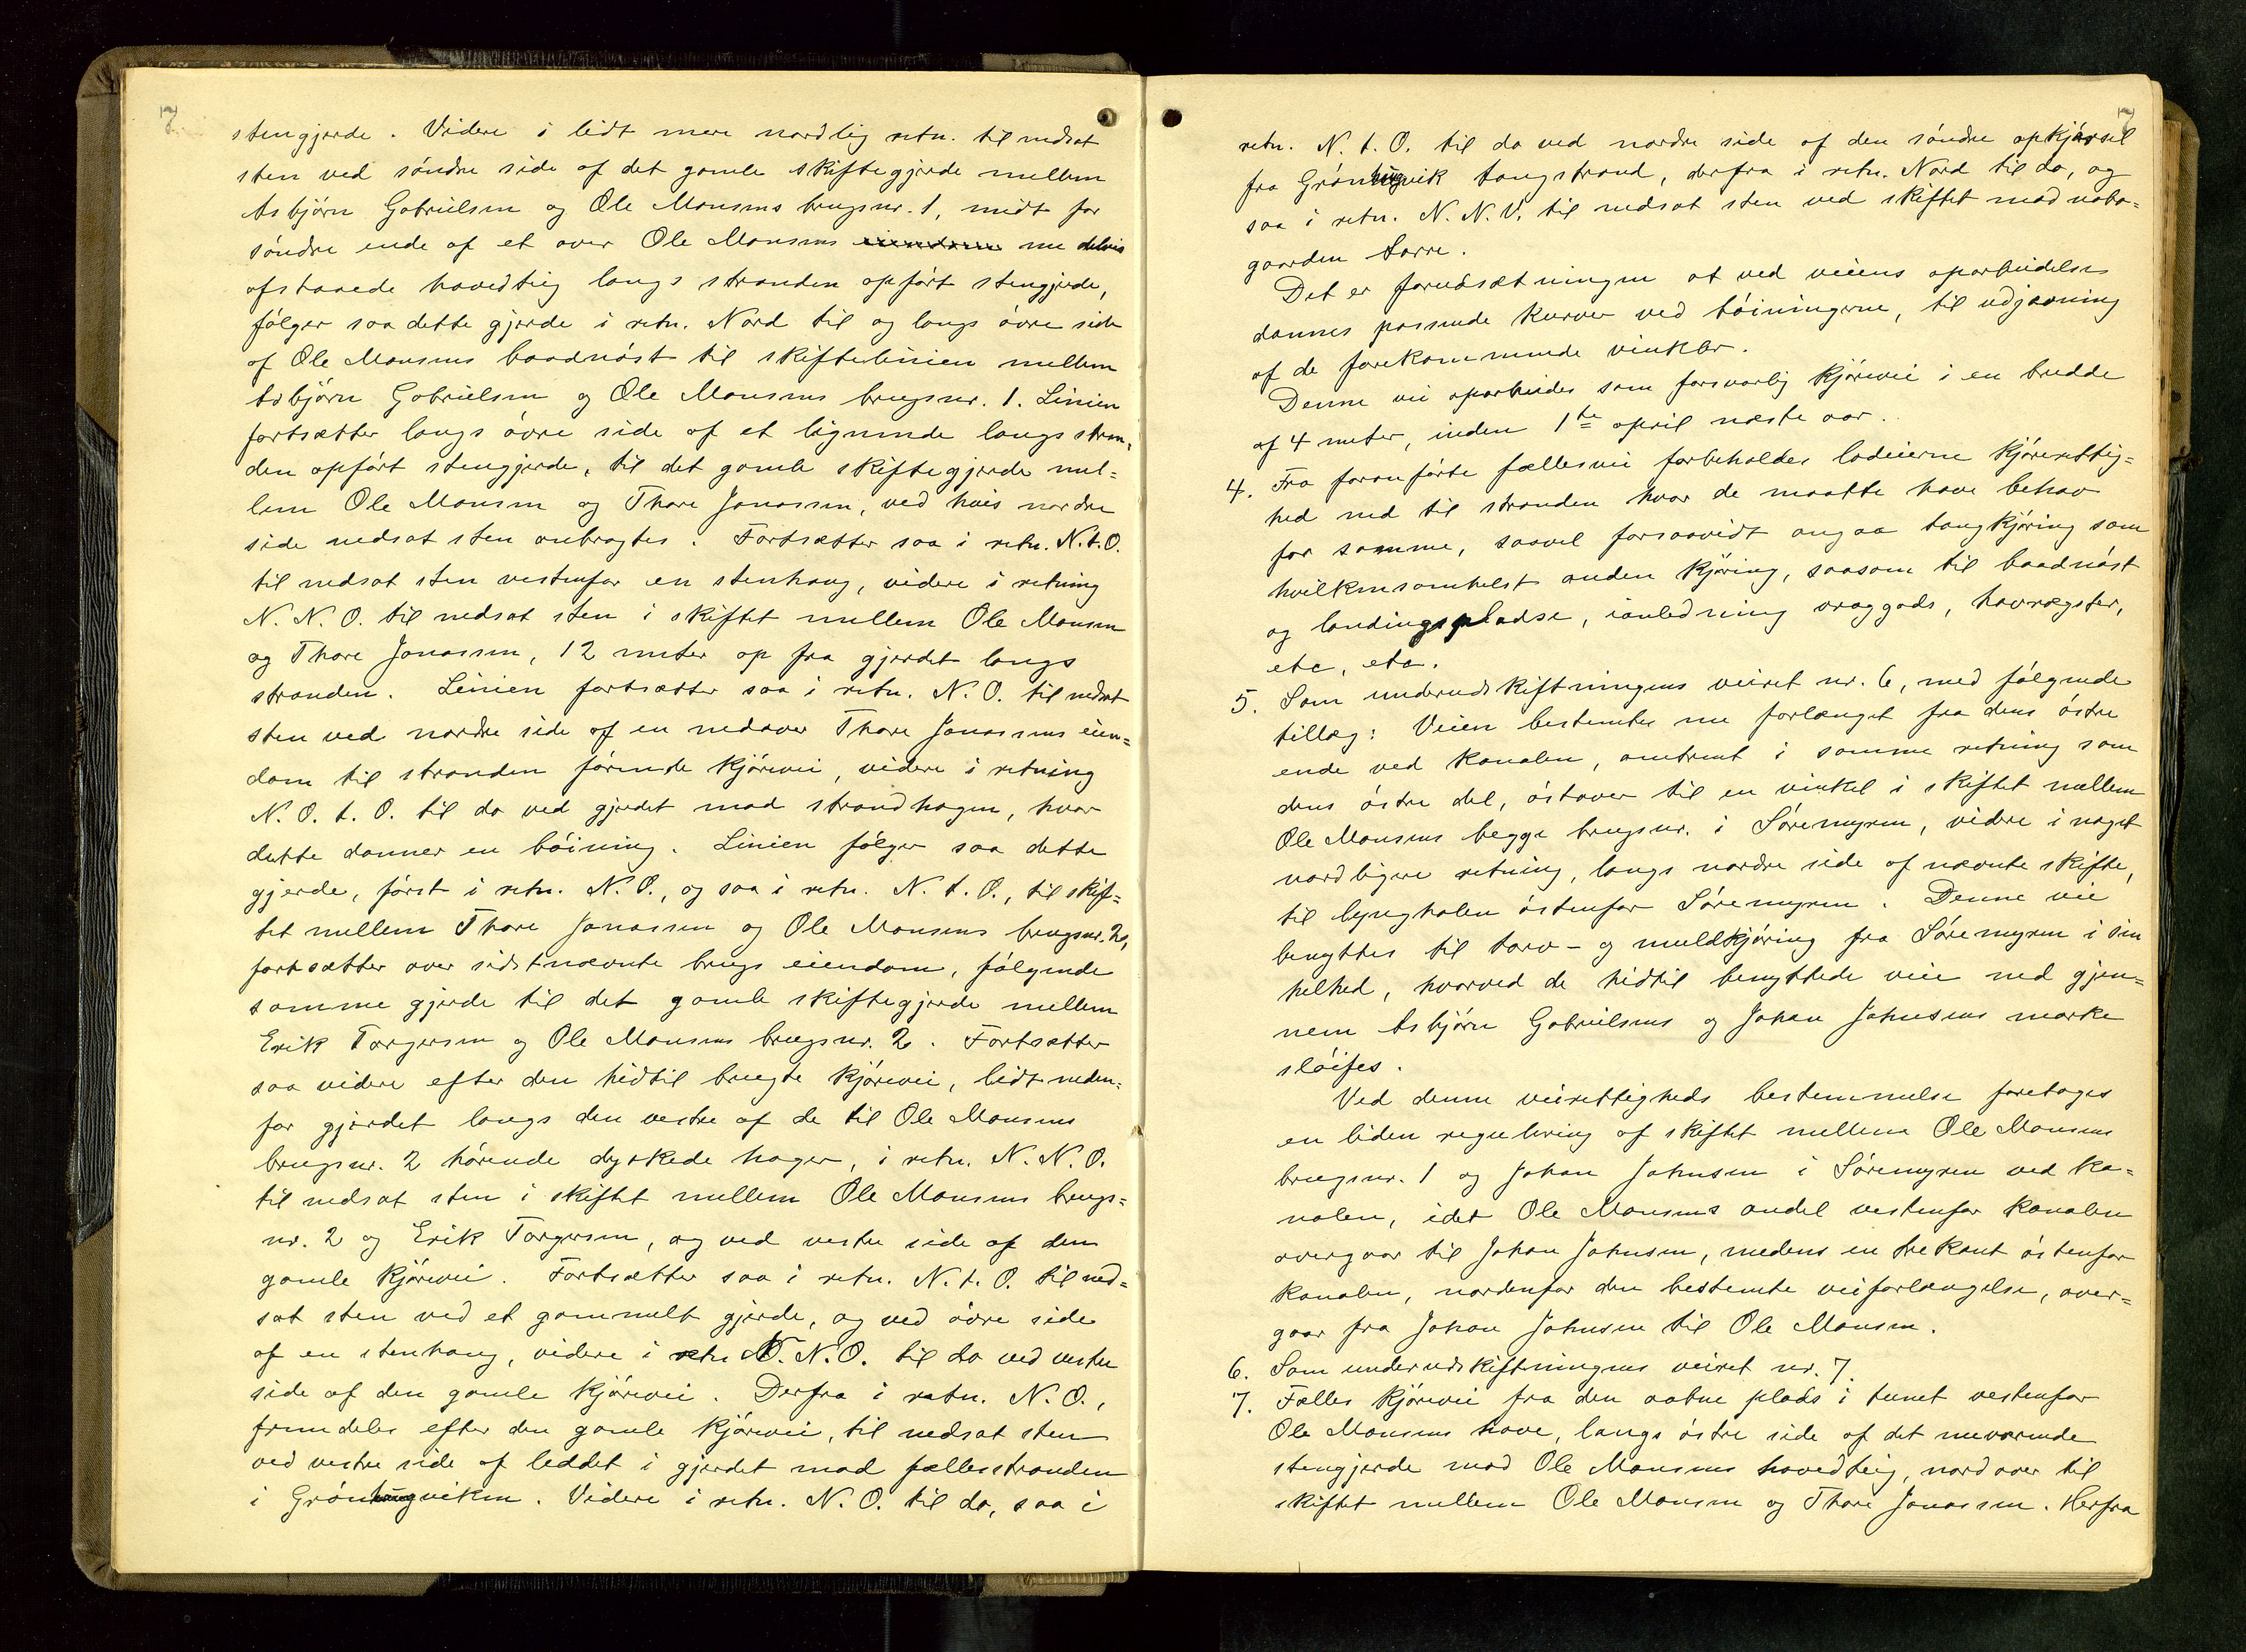 7
stengjerde. Videre i lidt mere nordlig retn. til nedsat
sten ved söndre side af det gamle skiftegjerde mellem
Asbjörn Gabrielsen og Ole Monsens brugsnr. 1, midt for
söndre ende af et over Ole Monsens eiendom nu delvis
afstaaede hovedteig langs stranden opfört stengjerde,
fölger saa dette gjerde i retn. Nord til og langs övre side
af Ole Monsens baadnöst til skiftelinien mellem
Asbjörn Gabrielsen og Ole Monsens brugsnr. 1. Linien
fortsætter langs övre side af et lignende langs stran-
den opfört stengjerde, til det gamle skiftegjerde mel=
lem Ole Monsen og Thore Jonassen, ved hvis nordre
side nedsat sten anbragtes. Fortsætter saa i retn. N.t.O.
til nedsat sten vestenfor en stenhaug, videre i retning
N. N. O. til nedsat sten i skiftet mellem Ole Monsen
og Thore Jonassen, 12 meter op fra gjerdet langs
stranden. Linien fortsætter saa i retn. N. O. til nedsat
sten ved nordre side af en nedover Thore Jonassens eien=
dom til stranden förende kjörevei, videre i retning
N. O. t. O. til do ved gjerdet mod strandhagen, hvor
dette danner en böining. Linien fölger saa dette
gjerde, först i retn. N. O., og saa i retn. N. t. O., til skif=
tet mellem Thore Jonassen og Ole Monsens brugsnr. 2,
fortsætter over sidstnævnte brugs eiendom, fölgende
samme gjerde til det gamle skiftegjerde mellem
Erik Torgersen og Ole Monsens brugsnr. 2. Fortsætter
saa videre efter den hidtil brugte kjörevei, lidt neden-
for gjerdet langs den vestre af de til Ole Monsens
brugsnr. 2 hörende dyrkede hager, i retn. N. N. O.
til nedsat sten i skiftet mellem Ole Monsens brugs=
nr. 2 og Erik Torgersen, og ved vestre side af den
gamle kjörevei. Fortsætter saa i retn. N. t. O. til ned=
sat sten ved et gammelt gjerde, og ved övre side
af en stenhaug, videre i retn N. N. O. til do ved vestre
side af den gamle kjörevei. Derfra i retn. N. O.,
fremdeles efter den gamle kjörevei, til nedsat sten
ved vestre side af leddet i gjerdet mod fællesstranden
i Gröningviken. Videre i retn. N. O. til do, saa i
7
retn. N. t. O. til do ved nordre side af den söndre opkjörsel
fra Gröningvik tangstrand, derfra i retn. Nord til do, og
saa i retn. N. N. V. til nedsat sten ved skiftet mod nabo=
gaarden Sørre.
Det er forudsætningen at ved veiens oparbeidelse
dannes passende kurver ved böiningerne, til udjævning
af de forekommende vinkler.
Denne vei oparbeides som forsvarlig kjörevei i en bredde
af 4 meter, inden 1te april næste aar.
4. Fra foranförte fællesvei forbeholdes lodeierne kjörerettig=
hed ned til stranden hvor de maatte have behov
for samme, saavel forsaavidt angaa tangkjöring som
hvilkensomhelst anden kjöring, saasom til baadnöst
og landingspladse, ianledning vraggods, havrægster,
etc, etc.
5. Som underudskiftningens veiret nr. 6, med fölgende
tillæg: Veien bestemtes nu forlænget fra dens östre
ende ved kanalen, omtrent i samme retning som
dens östre del, östover til en vinkel i skiftet mellem
Ole Monsens begge brugsnr. i Söremyren, videre i noget
nordligere retning, langs nordre side af nævnte skifte,
til lynghalen östenfor Söremyren. Denne vei
benyttes til torv- og muldkjöring fra Söremyren i sin
helhed, hvorved de hidtil benyttede veie ned gjen=
nem Asbjörn Gabrielsens og Johan Johnsens marke
slöifes.
Ved denne veirettigheds bestemmelse foretages
en liden regulering af skiftet mellem Ole Monsens
brugsnr. 1 og Johan Johnsen i Söremyren ved ka=
nalen, idet Ole Monsens andel vestenfor kanalen
overgaar til Johan Johnsen, medens en trekant östenfor
kanalen, nordenfor den bestemte veiforlængelse, over=
gaar fra Johan Johnsen til Ole Monsen.
6. Som underudskiftningens veiret nr. 7.
7. Fælles kjörevei fra den aabne plads i tunet vestenfor
Ole Monsens have, langs östre side af det nuværende
stengjerde mod Ole Monsens hovedteig, nordover til
skiftet mellem Ole Monsen og Thore Jonassen. Herfra